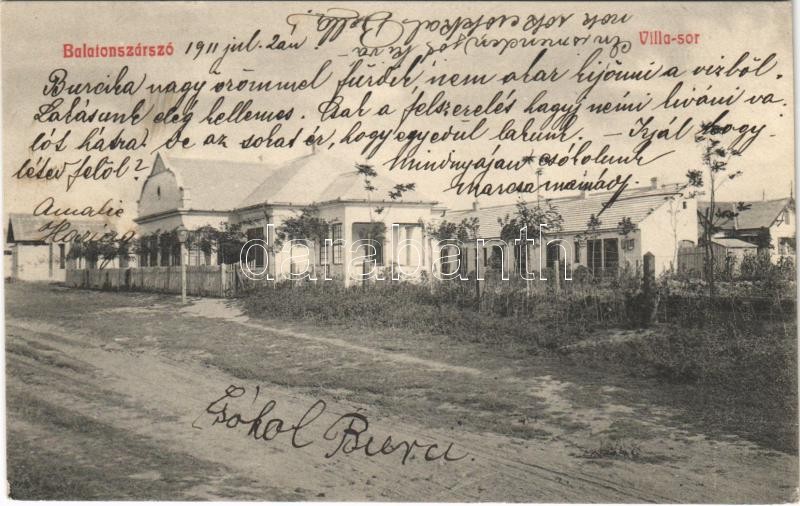 Balatonszárszó 1911 jul. 2án Villa-sor
Burcika nagy örömmel fürdik, nem akar kijönni a vizből.
Lakásunk elég kellemes. Csak a felszerelés hagy némi kiváni va-
lót hátra. De az sokat ér, hogy egyedül lakunk. — Irjál hogy-
létev felől? Mindnyájan csókolunk
Marcsa mamád
Amalie
sok sok csókkal Bella
Csókol Burcu.
darabanth.com